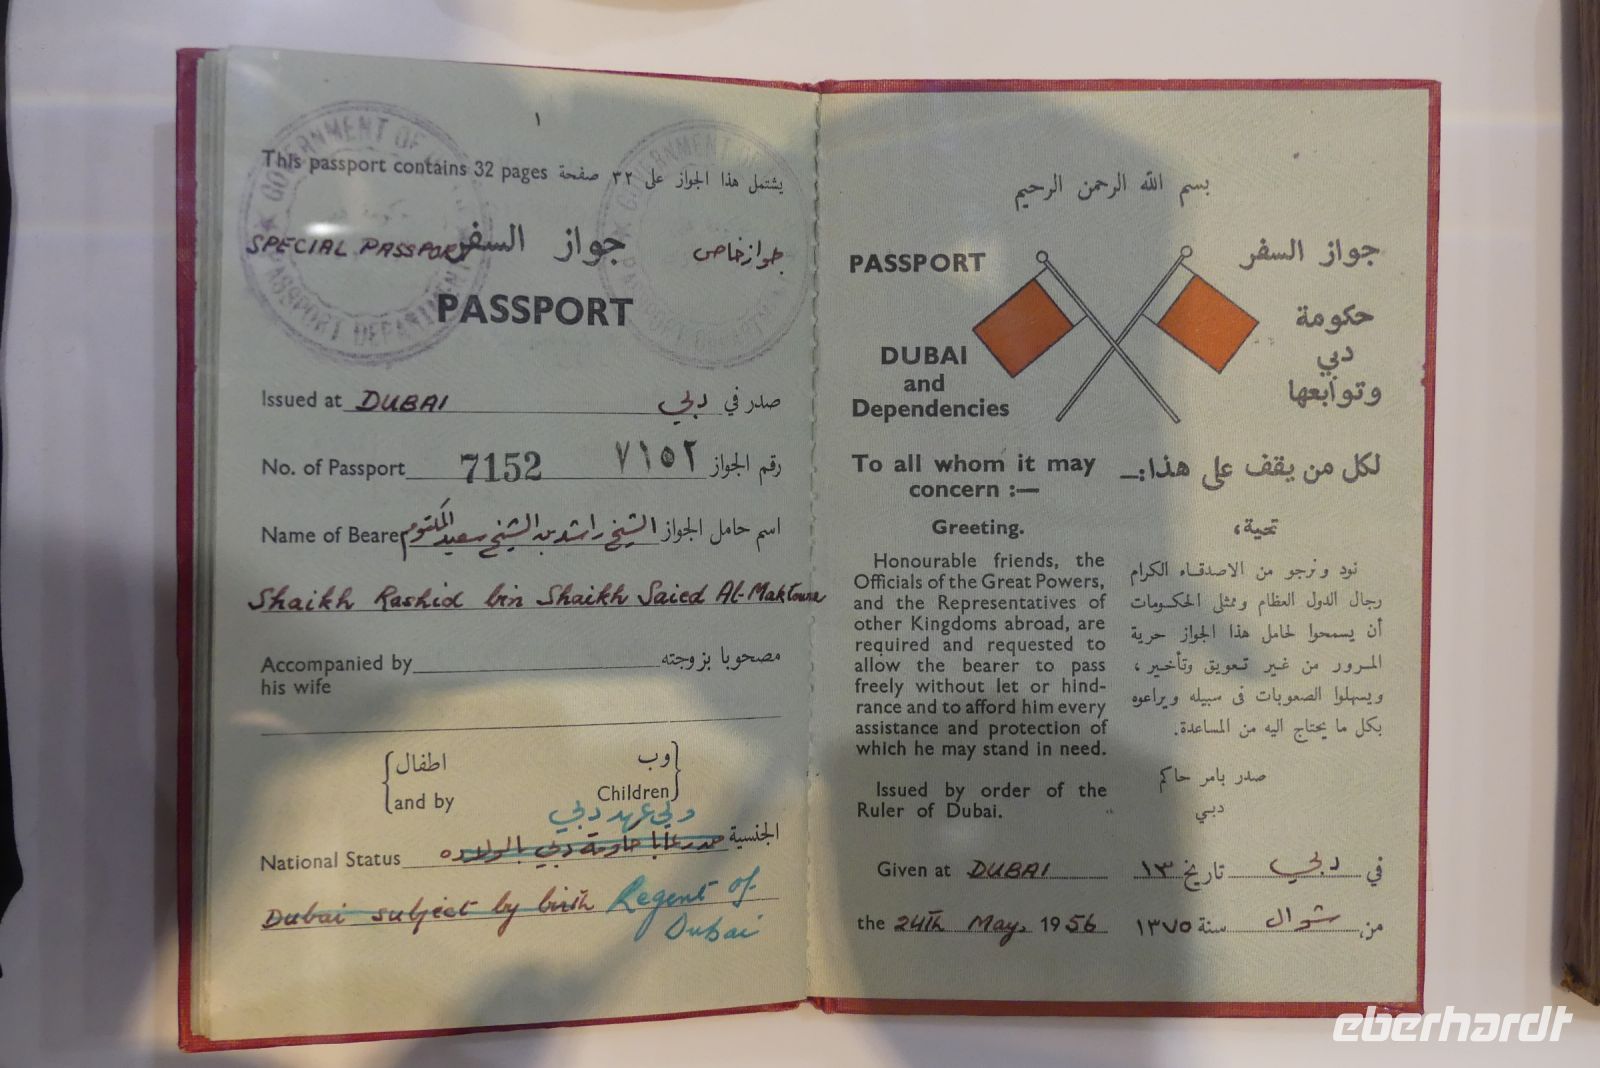 ١
This passport contains 32 pages يشتمل هذا الجواز على ٣٢ صفحة
GOVERNMENT OF
PASSPORT DEPARTMENT
GOVERNMENT OF
PASSPORT DEPARTMENT
SPECIAL PASSPORT جواز السفر جواز خاص
PASSPORT
Issued at DUBAI صدر في دبي
No. of Passport 7152 رقم الجواز ٧١٥٢
Name of Beare اسم حامل الجواز الشيخ راشد بن الشيخ سعيد المكتوم
Shaikh Rashid bin Shaikh Saied Al-Maktoum
Accompanied by مصحوبا بزوجته
his wife
اطفال وب
and by Children
ولي عهد دبي
National Status الجنسية دبي بالولاده
Dubai subject by birth Regent of
Dubai
بسم الله الرحمن الرحيم
PASSPORT جواز السفر
حكومة
DUBAI دبي
and
Dependencies وتوابعها
To all whom it may لكل من يقف على هذا:—
concern :—
Greeting. تحية،
Honourable friends, the
Officials of the Great Powers,
and the Representatives of
other Kingdoms abroad, are
required and requested to
allow the bearer to pass
freely without let or hind-
rance and to afford him every
assistance and protection of
which he may stand in need.
نود ونرجو من الاصدقاء الكرام
رجال الدول العظام وممثلى الحكومات
أن يسمحوا لحامل هذا الجواز حرية
المرور من غير تعويق وتأخير،
ويسهلوا الصعوبات فى سبيله ويراعوه
بكل ما يحتاج اليه من المساعدة.
Issued by order of the
Ruler of Dubai.
صدر بامر حاكم
دبي
Given at DUBAI في دبي تاريخ ١٣
the 24TH May, 1956 من شوال سنة ١٣٧٥
eberhardt